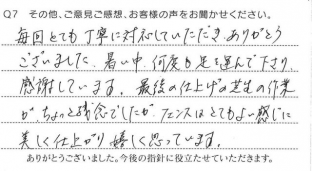 Q7 その他、ご意見ご感想、お客様の声をお聞かせください。
毎回とても丁寧に対応していただき、ありがとう
ございました。暑い中、何度も足を運んで下さり
感謝しています。最後の仕上げの芝生の作業
がちょっと残念でしたが、フェンスはとてもよい感じに
美しく仕上がり嬉しく思っています。
ありがとうございました。今後の指針に役立たせていただきます。